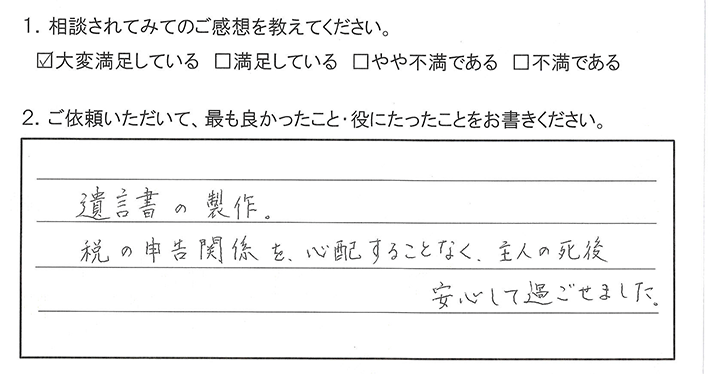 1. 相談されてみてのご感想を教えてください。
☑大変満足している □満足している □やや不満である □不満である
2. ご依頼いただいて、最も良かったこと・役にたったことをお書きください。
遺言書の製作。
税の申告関係を、心配することなく、主人の死後
安心して過ごせました。